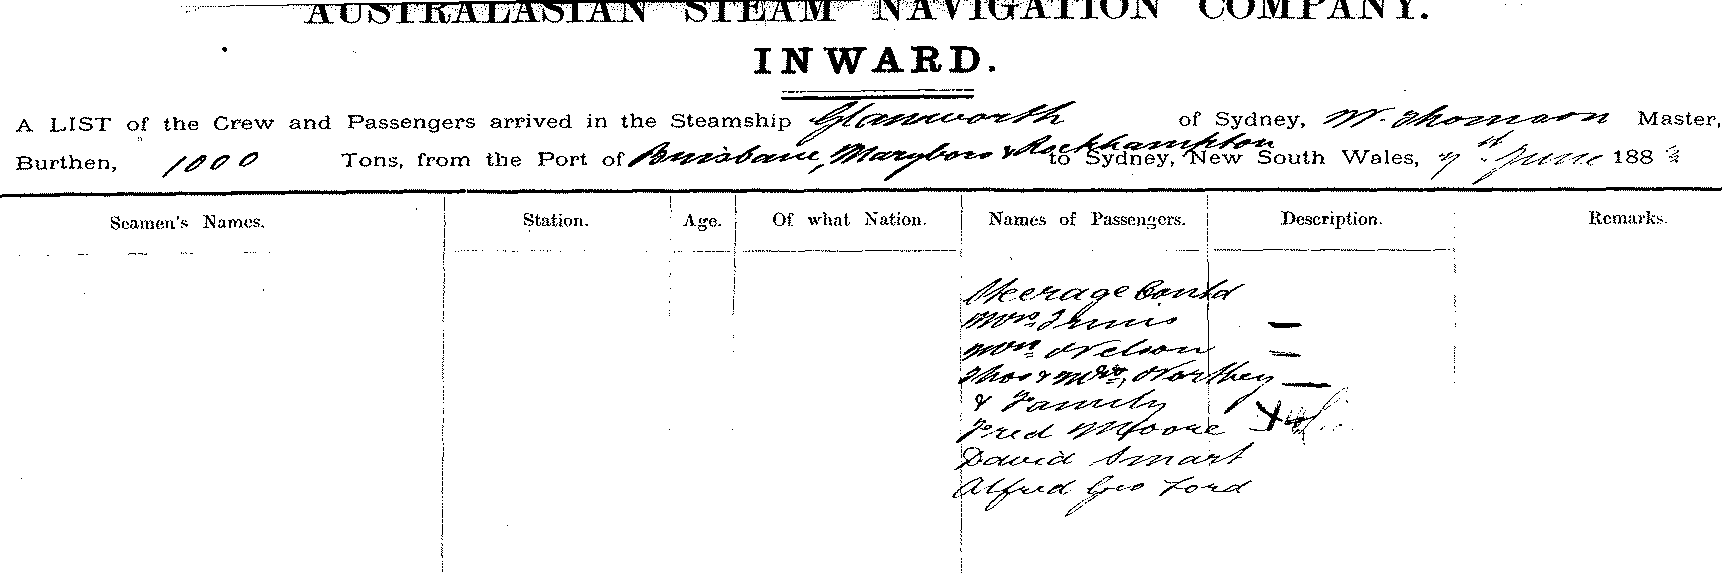 AUSTRALASIAN STEAM NAVIGATION COMPANY.
INWARD.
A LIST of the Crew and Passengers arrived in the Steamship Glanworth of Sydney, W. Thomson Master,
Burthen, 1000 Tons, from the Port of Brisbane, Maryboro & Rockhampton to Sydney, New South Wales, 7th June 188
Seamen's Names. Station. Age. Of what Nation. Names of Passengers. Description. Remarks.
Steerage Contd
Mrs
Nelson
Thos & Mrs, Northey
& Family
Fred Moore
David Smart
Alfred Geo Ford